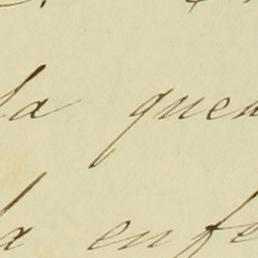 la que
la enfe